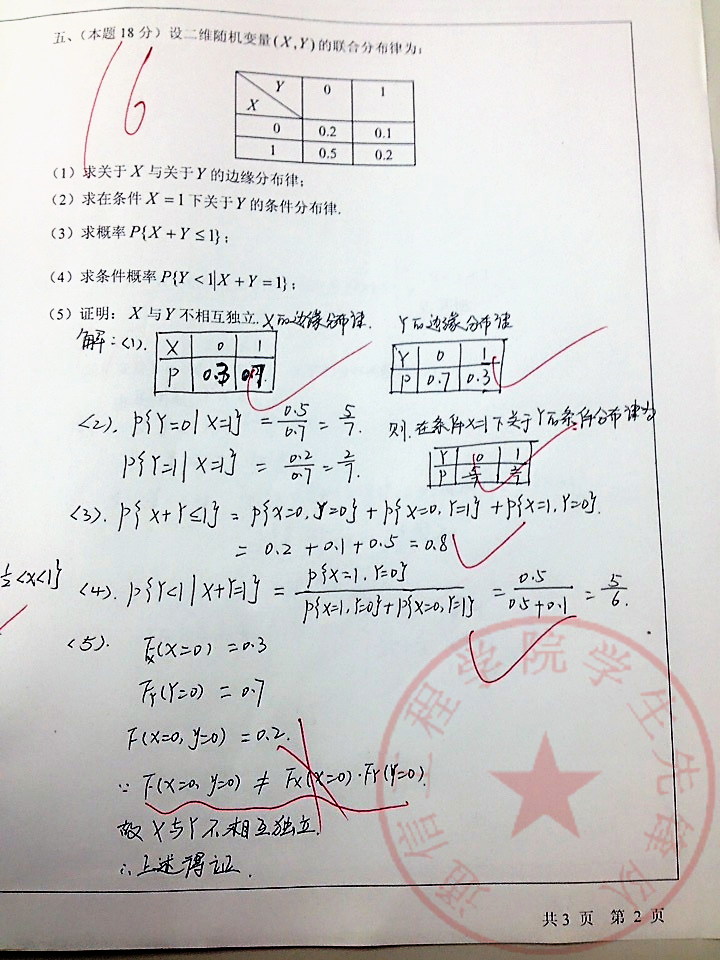 五、(本题 18 分) 设二维随机变量 (X,Y) 的联合分布律为:
16
Y 0 1
X
0 0.2 0.1
1 0.5 0.2
(1) 求关于 X 与关于 Y 的边缘分布律;
(2) 求在条件 X = 1 下关于 Y 的条件分布律.
(3) 求概率 P{X + Y ≤ 1};
(4) 求条件概率 P{Y < 1|X + Y = 1};
(5) 证明: X 与 Y 不相互独立.
解:<1>. X的边缘分布律. Y的边缘分布律
X 0 1
P 0.3 0.7
Y 0 1
P 0.7 0.3
<2>. P{Y=0 | X=1} = 0.5/0.7 = 5/7. 则.在条件X=1下关于Y的条件分布律为
P{Y=1 | X=1} = 0.2/0.7 = 2/7.
Y 0 1
P 5/7 2/7
<3>. P{X+Y≤1} = P{X=0, Y=0} + P{X=0, Y=1} + P{X=1, Y=0}.
= 0.2 + 0.1 + 0.5 = 0.8
1/2<x<1}
<4>. P{Y<1 | X+Y=1} = P{X=1, Y=0} / P{X=1, Y=0}+P{X=0, Y=1} = 0.5/0.5+0.1 = 5/6.
<5>. Fx(X=0) = 0.3
FY(Y=0) = 0.7
F(X=0, Y=0) = 0.2.
∵ F(X=0, Y=0) ≠ Fx(X=0)·FY(Y=0).
故 X 与 Y 不相互独立.
∴上述得证.
通信工程学院学生先锋队
共 3 页 第 2 页